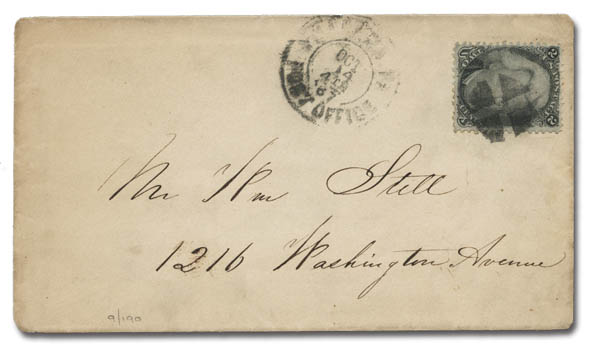 OCT
14
OFFICE
Mr Wm Still
1216 Washington Avenue
9/190